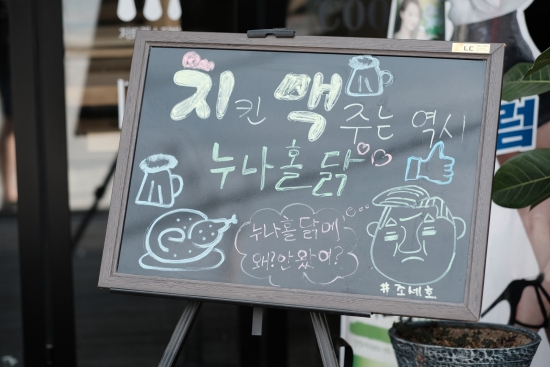 LC
치킨 맥주는 역시
누나홀닭
누나홀닭에
왜? 안왔어?
#조세호
럼